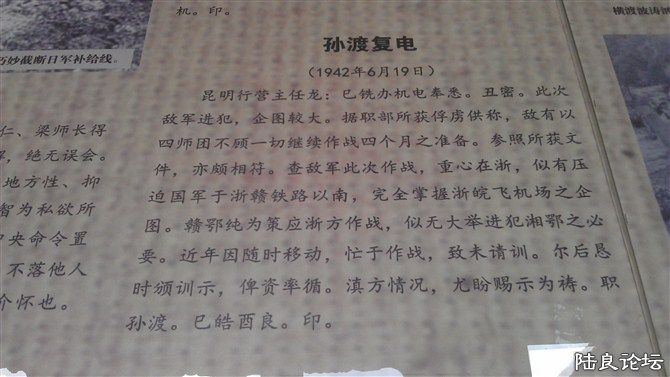 机。印。
巧妙截断日军补给线。
横渡波涛汹
孙渡复电
（1942年6月19日）
昆明行营主任龙：巳铣办机电奉悉。丑密。此次
敌军进犯，企图较大。据职部所获俘虏供称，敌有以
四师团不顾一切继续作战四个月之准备。参照所获文
件，亦颇相符。查敌军此次作战，重心在浙，似有压
迫国军于浙赣铁路以南，完全掌握浙皖飞机场之企
图。赣鄂纯为策应浙方作战，似无大举进犯湘鄂之必
要。近年因随时移动，忙于作战，致未请训。尔后恳
时颁训示，俾资率循。滇方情况，尤盼赐示为祷。职
孙渡。巳皓酉良。印。
仁、梁师长得
，绝无误会。
地方性、抑
智为私欲所
中央命令置
不落他人
介怀也。
陆良论坛